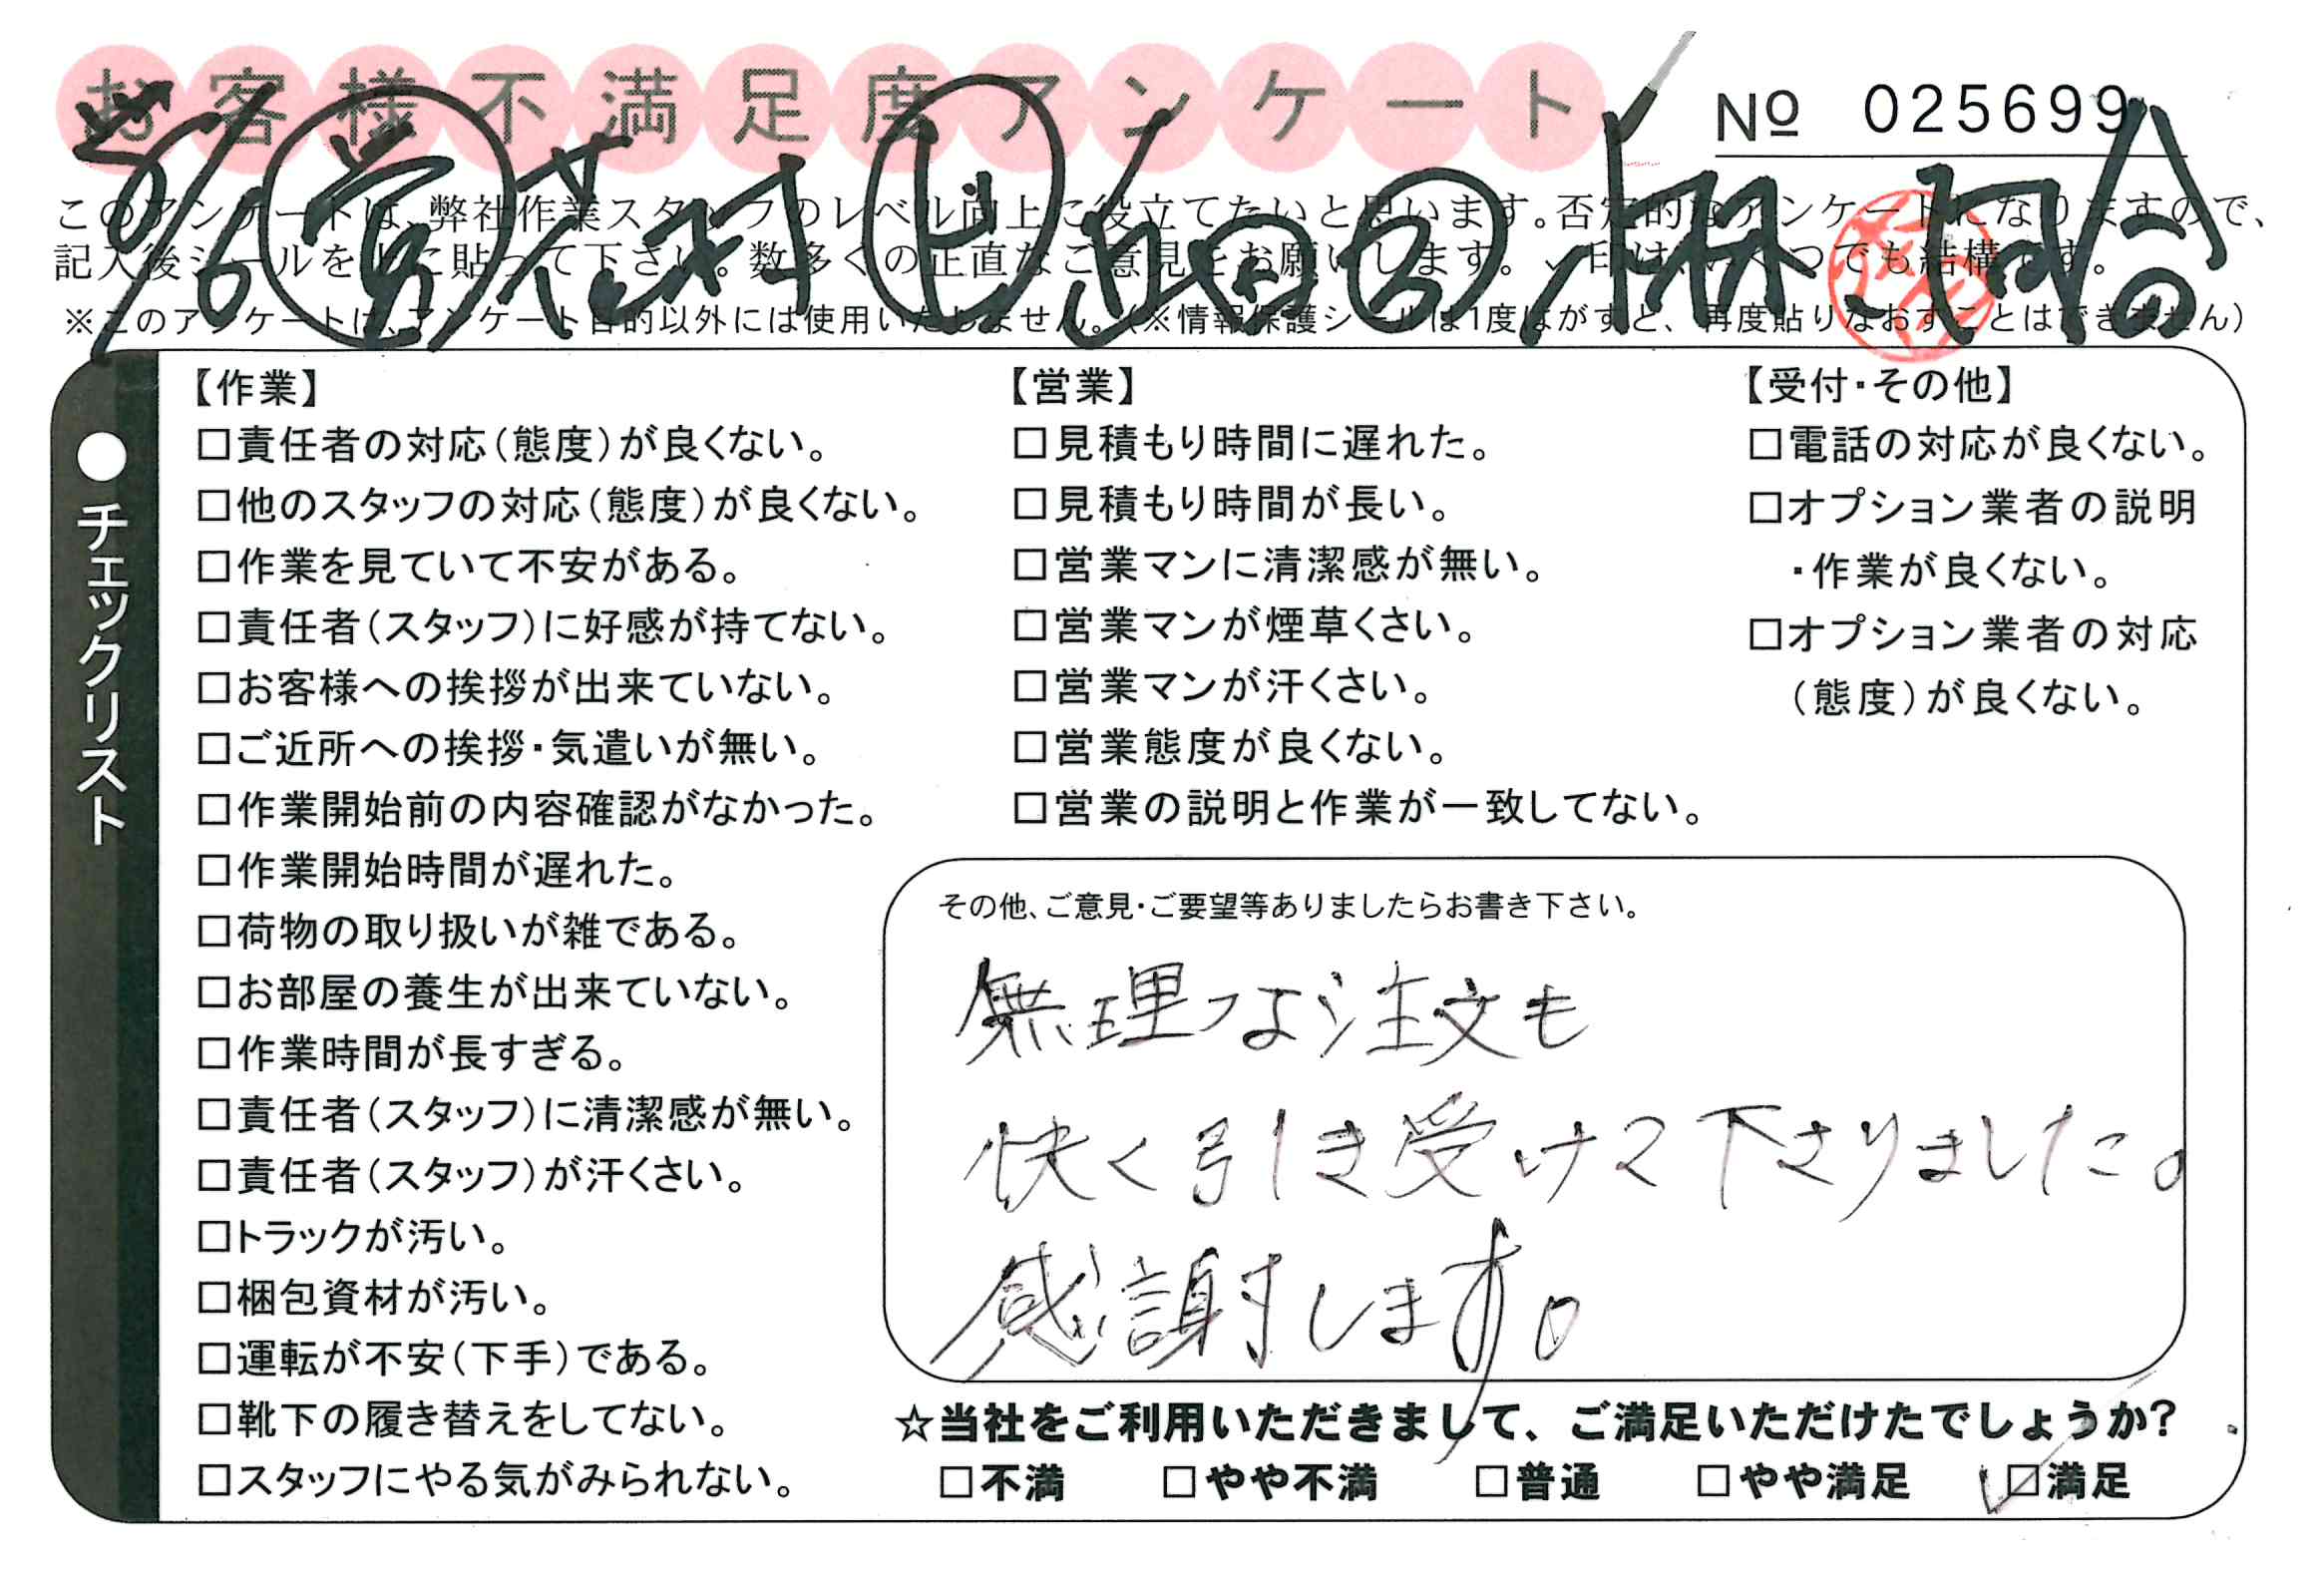 お客様不満足度アンケート
№ 025699
このアンケートは、弊社作業スタッフのレベル向上に役立てたいと思います。否定的なアンケートになりますので、
記入後シールを上に貼って下さい。数多くの正直なご意見をお願いします。✓印は、いくつでも結構です。
※このアンケートは、アンケート目的以外には使用いたしません。（※情報保護シールは1度はがすと、再度貼りなおすことはできません）
●チェックリスト
【作業】
□責任者の対応（態度）が良くない。
□他のスタッフの対応（態度）が良くない。
□作業を見ていて不安がある。
□責任者（スタッフ）に好感が持てない。
□お客様への挨拶が出来ていない。
□ご近所への挨拶・気遣いが無い。
□作業開始前の内容確認がなかった。
□作業開始時間が遅れた。
□荷物の取り扱いが雑である。
□お部屋の養生が出来ていない。
□作業時間が長すぎる。
□責任者（スタッフ）に清潔感が無い。
□責任者（スタッフ）が汗くさい。
□トラックが汚い。
□梱包資材が汚い。
□運転が不安（下手）である。
□靴下の履き替えをしてない。
□スタッフにやる気がみられない。
【営業】
□見積もり時間に遅れた。
□見積もり時間が長い。
□営業マンに清潔感が無い。
□営業マンが煙草くさい。
□営業マンが汗くさい。
□営業態度が良くない。
□営業の説明と作業が一致してない。
【受付・その他】
□電話の対応が良くない。
□オプション業者の説明
・作業が良くない。
□オプション業者の対応
（態度）が良くない。
その他、ご意見・ご要望等ありましたらお書き下さい。
無理な注文も
快く引き受けて下さりました。
感謝します。
☆当社をご利用いただきまして、ご満足いただけたでしょうか？
□不満 □やや不満 □普通 □やや満足 ☑満足